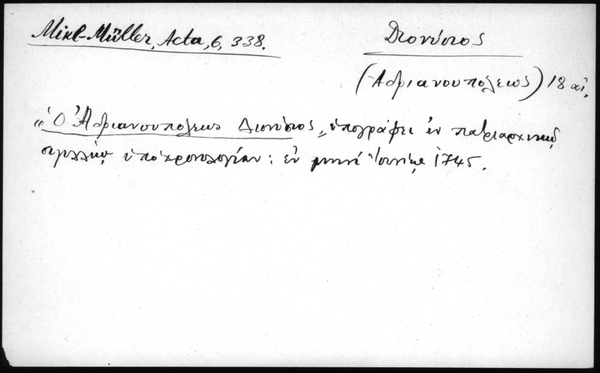 Mikl-Müller, Acta, 6, 338.
Διονύσιος
(Ἀδριανουπόλεως) 18 αἰ.
"Ὁ Ἀδριανουπόλεως Διονύσιος" ὑπογράφει ἐν πατριαρχικῷ
σιγιλλίῳ ὑπὸ χρονολογίαν: ἐν μηνὶ Ἰουνίῳ 1745.